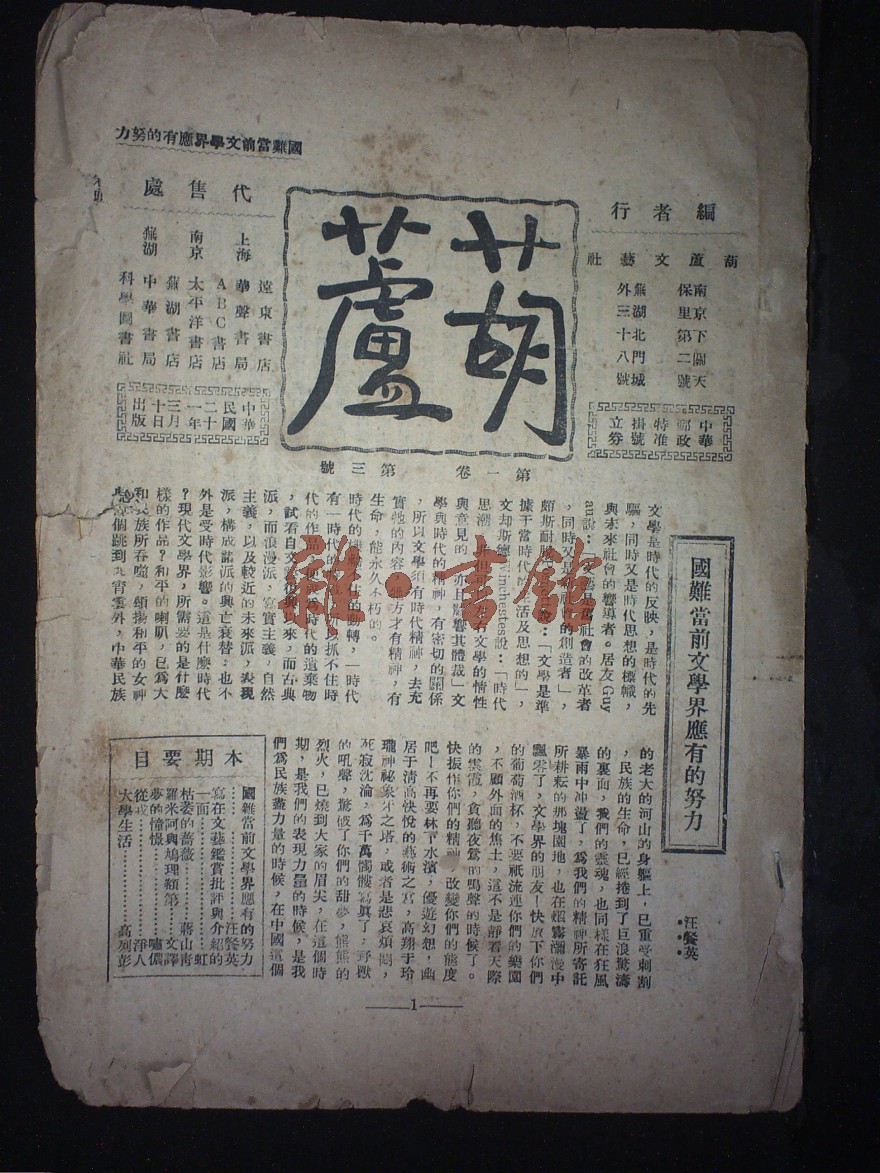 國難當前文學界應有的努力
編者行
葫蘆文藝社
南京下關天
保里第二號
蕪湖北門城
外三十八號
中華
郵政
特准
掛號
立券
葫蘆
第一卷 第三號
代售處
上海
遠東書店
華聲書局
ABC書店
南京
太平洋書店
蕪湖書店
蕪湖
中華書局
科學圖書社
中華
民國
二十
一年
三月
十日
出版
國難當前文學界應有的努力
汪餐英
文學是時代的反映,是時代的先
驅,同時又是時代思想的標幟,
與未來社會的響導者。居友Guy
au說:「是社會的改革者
,同時又是的創造者」,
頗斯耐說:「文學是準
據于當時代的活及思想的」,
文却斯德inchestes說:「時代
思潮,不但可有文學的情性
與意見的,亦且影響其體裁」文
學與時代的精神,有密切的關係
,所以文學須有時代精神,去充
實牠的內容,方才有精神,有
生命,能永久不朽的。
時代的不住的動轉,一時代
有一時代的以抓不住時
代的作品,便成為時代的遺棄物
,試看自文復興以來,而古典
派,而浪漫派,寫實主義,自然
主義,以及較近的未來派,表現
派,構成諸派的興亡衰替;也不
外是受時代影響。這是什麼時代
?現代文學界,所需要的是什麼
樣的作品?和平的喇叭,已為大
和民族所吞噬,頌揚和平的女神
個跳到九宵雲外,中華民族
的老大的河山的身軀上,已重受刺割
,民族的生命,已經捲到了巨浪驚濤
的裏面,我們的靈魂,也同樣在狂風
暴雨中冲盪了,為我們的精神所寄託
所耕耘的那塊園地,也在烟霧瀰漫中
飄零了,文學界的朋友!快放下你們
的葡萄酒杯,不要祇流連你們的樂園
,不顧外面的焦土,這不是靜看天際
的雲霞,貪聽夜鶯的鳴聲的時候了。
快振作你們的精神,改變你們的態度
吧!不再要林下水濱,優遊幻想,幽
居于清高快悅的藝術之宮,高翔于玲
瓏神祕象牙之塔,或者是悲哀煩悶,
死寂沈淪,為千萬髑髏寫真了;野獸
的吼聲,驚破了你們的甜夢,熊熊的
烈火,已燒到大家的眉尖,在這個時
期,是我們的表現力量的時候,是我
們為民族盡力量的時候,在中國這個
本期要目
國難當前文學界應有的努力
……汪餐英
寫在文藝鑑賞批評與介紹的
一面……虹
枯萎的薔薇……蔣山靑
羅米阿與鳩理額第……文譯
夢的憧憬……嘯儂
從戎……淨人
大學生活……高列彭
—1—
雜·書館